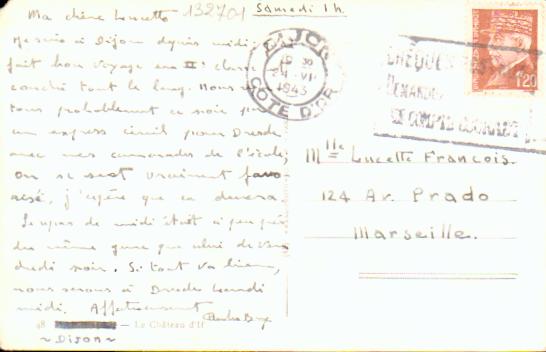 Ma chère Lucette 132701 Samedi 1h.
Je suis à Dijon depuis midi,
fait bon voyage en IIe classe
couché tout le long. Nous
tous probablement ce soir
un express civil pour Dresde
avec mes camarades de l'école,
on se sent vraiment favo-
risé, j'espère que ça durera
Le repas de midi était à peu près
du même genre que celui de ven
dredi soir. Si tout va bien,
nous serons à Dresde Lundi
midi. Affectueusement
98 — Le Château d'If
~ Dijon ~
DIJON
19 30
VI
1943
CÔTE D'OR
CHÈQUES POST
DEMANDEZ
COMPTE COURANT
1F20
Mlle Lucette François.
124 Av. Prado
Marseille.